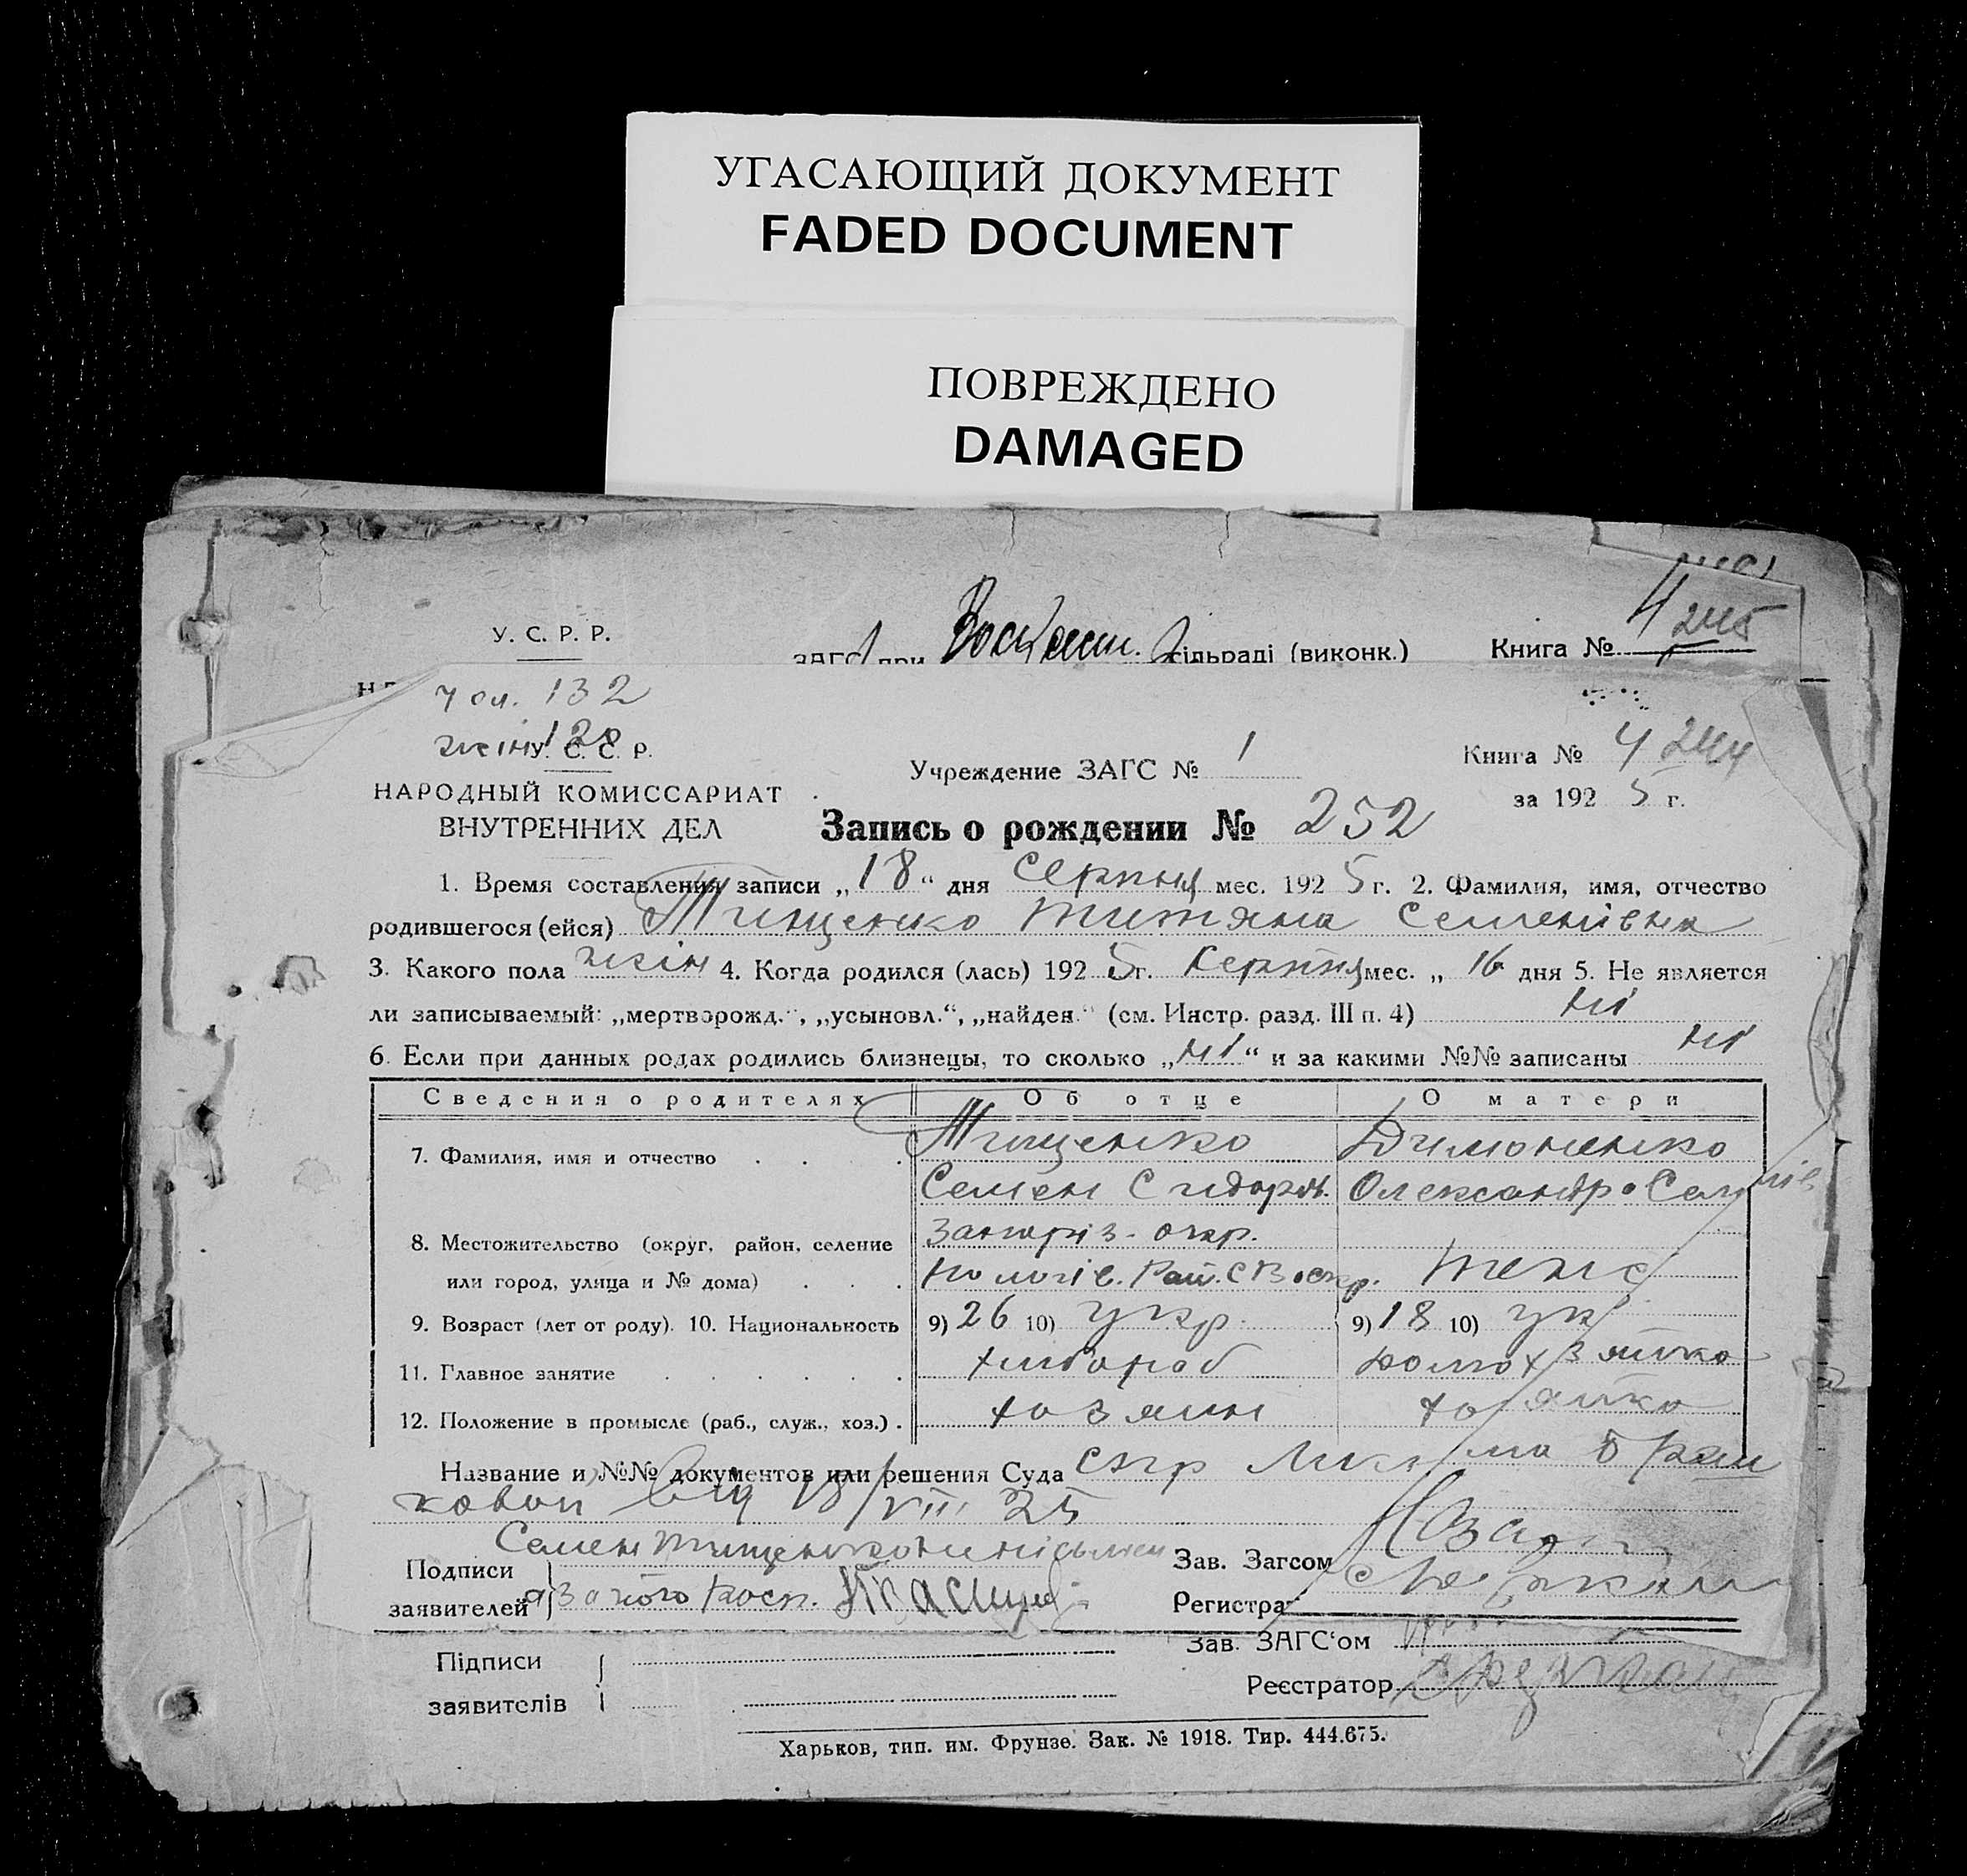 УГАСАЮЩИЙ ДОКУМЕНТ
FADED DOCUMENT
ПОВРЕЖДЕНО
DAMAGED
У. С. Р. Р.
ЗАГС при сільраді (виконк.) Книга № 4 245
чол. 132
жін 120
У. С. С. Р.
Учреждение ЗАГС № 1 Книга № 4 244
НАРОДНЫЙ КОМИССАРИАТ за 192 5 г.
ВНУТРЕННИХ ДЕЛ Запись о рождении № 252
1. Время составления записи „18“ дня Серпня мес. 192 5 г. 2. Фамилия, имя, отчество
родившегося (ейся) Тищенко Титяна Семенівна
3. Какого пола жін 4. Когда родился (лась) 192 5 г. Серпня мес. „ 16 дня 5. Не является
ли записываемый: „мертворожд.“, „усыновл.“, „найден.“ (см. Инстр. разд. III п. 4) ні
6. Если при данных родах родились близнецы, то сколько „ні“ и за какими №№ записаны ні
Сведения о родителях Об отце О матери
7. Фамилия, имя и отчество Тищенко Димоненко
Семен Сидоров. Олександра
8. Местожительство (округ, район, селение Запоріз. окр.
или город, улица и № дома) Пологів. Рай. С Воскр. теже
9. Возраст (лет от роду). 10. Национальность 9) 26 10) укр. 9) 18 10) ук
11. Главное занятие хлібороб домохзяйка
12. Положение в промысле (раб., служ., хоз.) хозяин хозяйка
Название и №№ документов или решения Суда
від 18/VIII 25
Семен Тищенко неписьмен
Подписи Зав. Загсом
заявителей а за його Росп. Регистра
Зав. ЗАГС'ом
Підписи
Реєстратор
заявителів
Харьков, тип. им. Фрунзе. Зак. № 1918. Тир. 444.675.